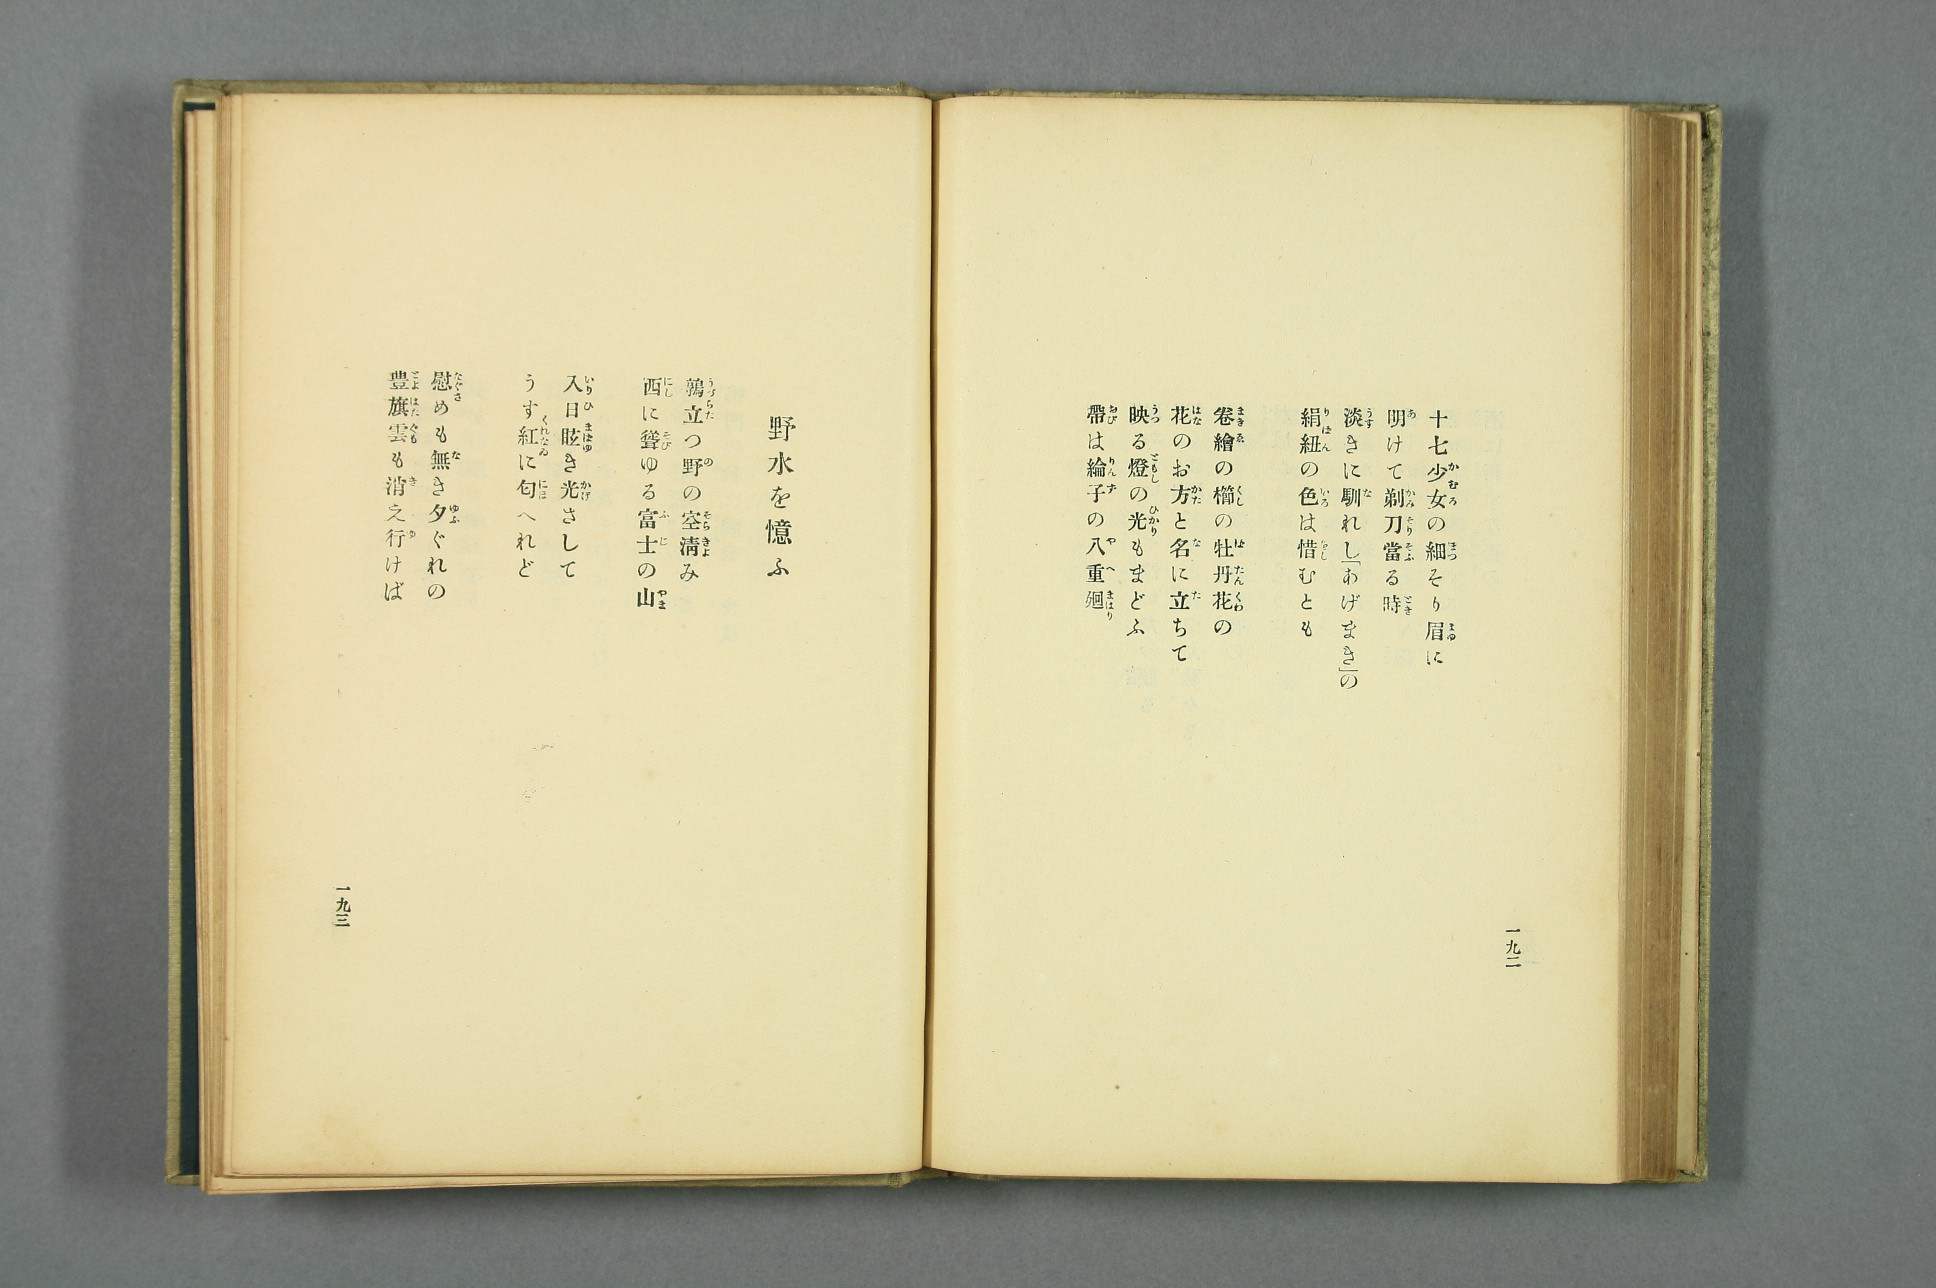 十七少女の細そり眉に
明けて剃刀當る時
淡きに馴れし「あげまき」の
絹紐の色は惜むとも
卷繪の櫛の牡丹花の
花のお方と名に立ちて
映る燈の光もまどふ
帶は綸子の八重廻
一九二
野水を憶ふ
鶉立つ野の空淸み
西に聳ゆる富士の山
入日眩き光さして
うす紅に匂へれど
慰めも無き夕ぐれの
豊旗雲も消え行けば
一九三